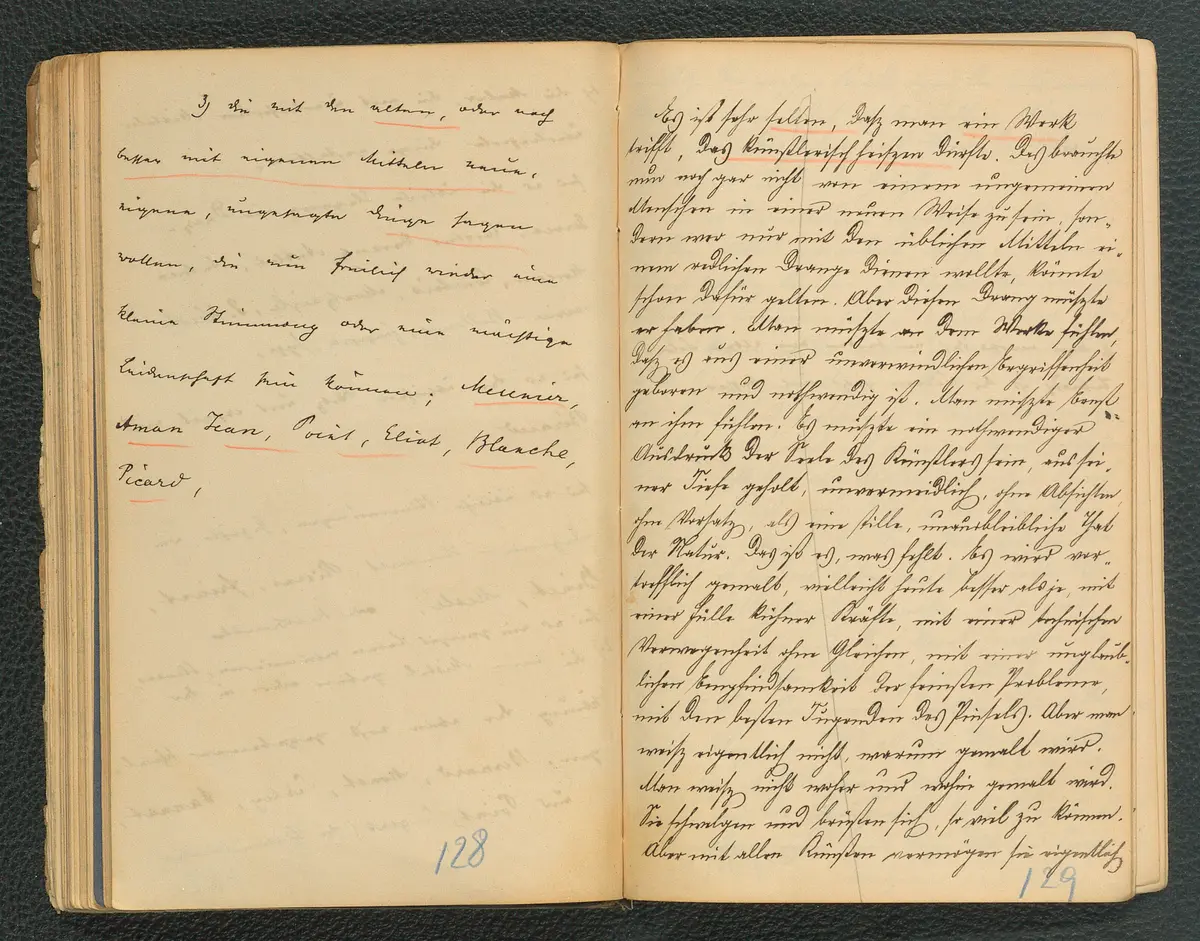 3) die mit den alten, oder noch
besser mit eigenen Mitteln neue,
eigene, ungesagte Dinge sagen
wollen, die nun freilich wieder eine
kleine Stimmung oder eine mächtige
Leidenschaft sein können; Meunier,
Aman Jean, Point, Eliot, Blanche,
Picard,
128
Es ist sehr selten, dasz man ein Werk
trifft, das künstlerisch heiszen dürfte. Das brauchte
nun noch gar nicht von einem ungemeinen
Menschen in einer neuen Weise zu sein, son-
dern wer nur mit den üblichen Mitteln ei-
nem redlichen Drange dienen wollte, könnte
schon dafür gelten. Aber diesen Drang müszte
er haben. Man müszte an dem Werke fühlen,
dasz es aus einer unverwindlichen Ergriffenheit
geboren und nothwendig ist. Man müszte Ernst
an ihm fühlen. Es müszte ein nothwendiger
Ausdruck der Seele des Künstlers sein, aus sei-
ner Tiefe geholt, unvermeidlich, ohne Absichten,
ohne Vorsatz, als eine stille, unausbleibliche That
der Natur. Das ist es, was fehlt. Es wird vor-
trefflich gemalt, vielleicht heute besser als je, mit
einer Fülle kühner Kräfte, mit einer technischen
Verwegenheit ohne Gleichen, mit einer unglaub-
lichen Empfindsamkeit der feinsten Probleme,
mit den besten Tugenden des Pinsels. Aber man
weisz eigentlich nicht, warum gemalt wird.
Man weisz nicht woher und wohin gemalt wird.
Sie schwelgen und brüsten sich, so viel zu können.
Aber mit allen Künsten vermögen sie eigentlich
129